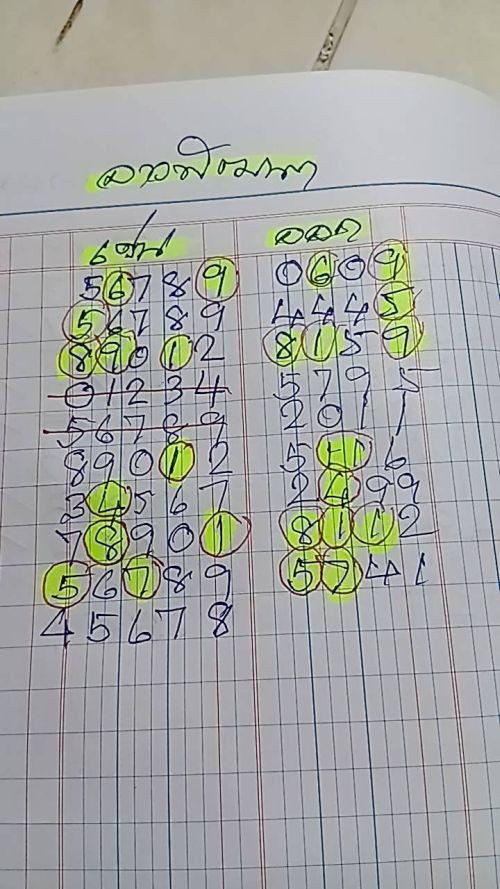 ลาวพัฒนา
ออก
5 6 7 8 9 0 6 0 9
5 6 7 8 9 4 4 4 5
8 9 0 1 2 8 1 5 9
0 1 2 3 4 5 7 9 5
5 6 7 8 9 2 0 1 1
8 9 0 1 2 5 4 1 6
3 4 5 6 7 2 4 9 9
7 8 9 0 1 8 1 1 2
5 6 7 8 9 5 7 4 1
4 5 6 7 8